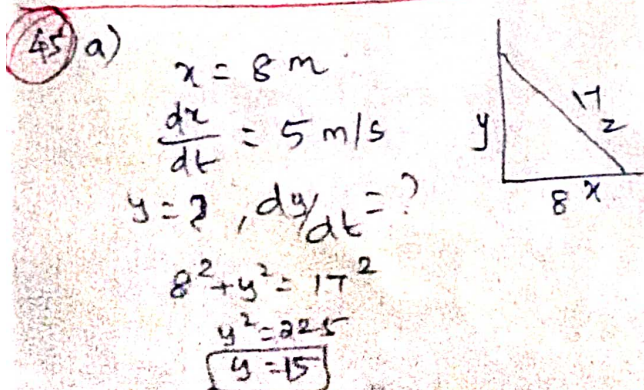 45) a)
x = 8 m
dx/dt = 5 m/s
y = ?, dy/dt = ?
8² + y² = 17²
y² = 225
y = 15
y
17
z
8 x